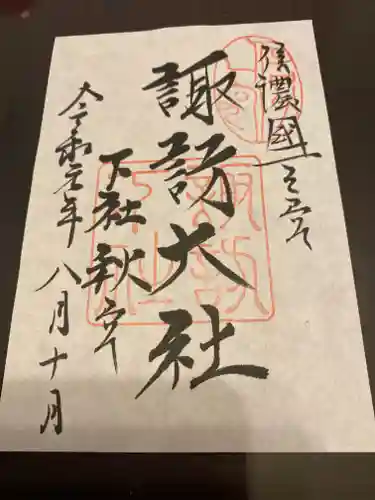 信濃國一之宮
諏訪大社
下社秋宮
令和元年八月十月